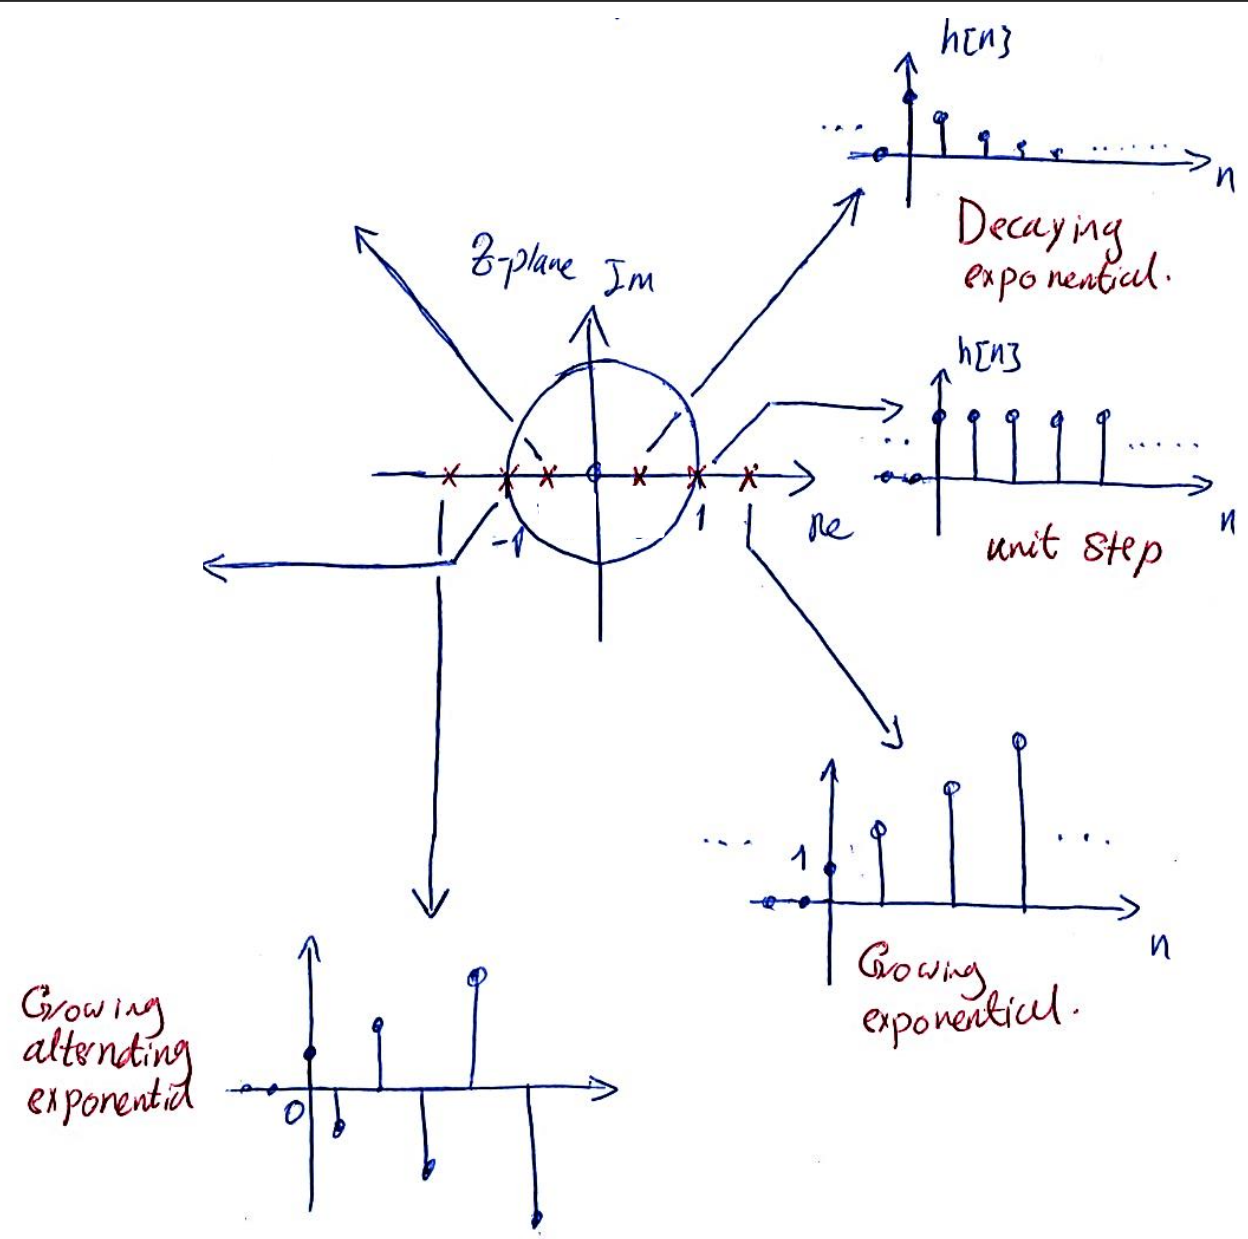 h[n]
n
Decaying
exponential.
Z-plane Im
h[n]
n
unit step
-1
1
Re
1
n
Growing
exponential.
Growing
alternating
exponential
0